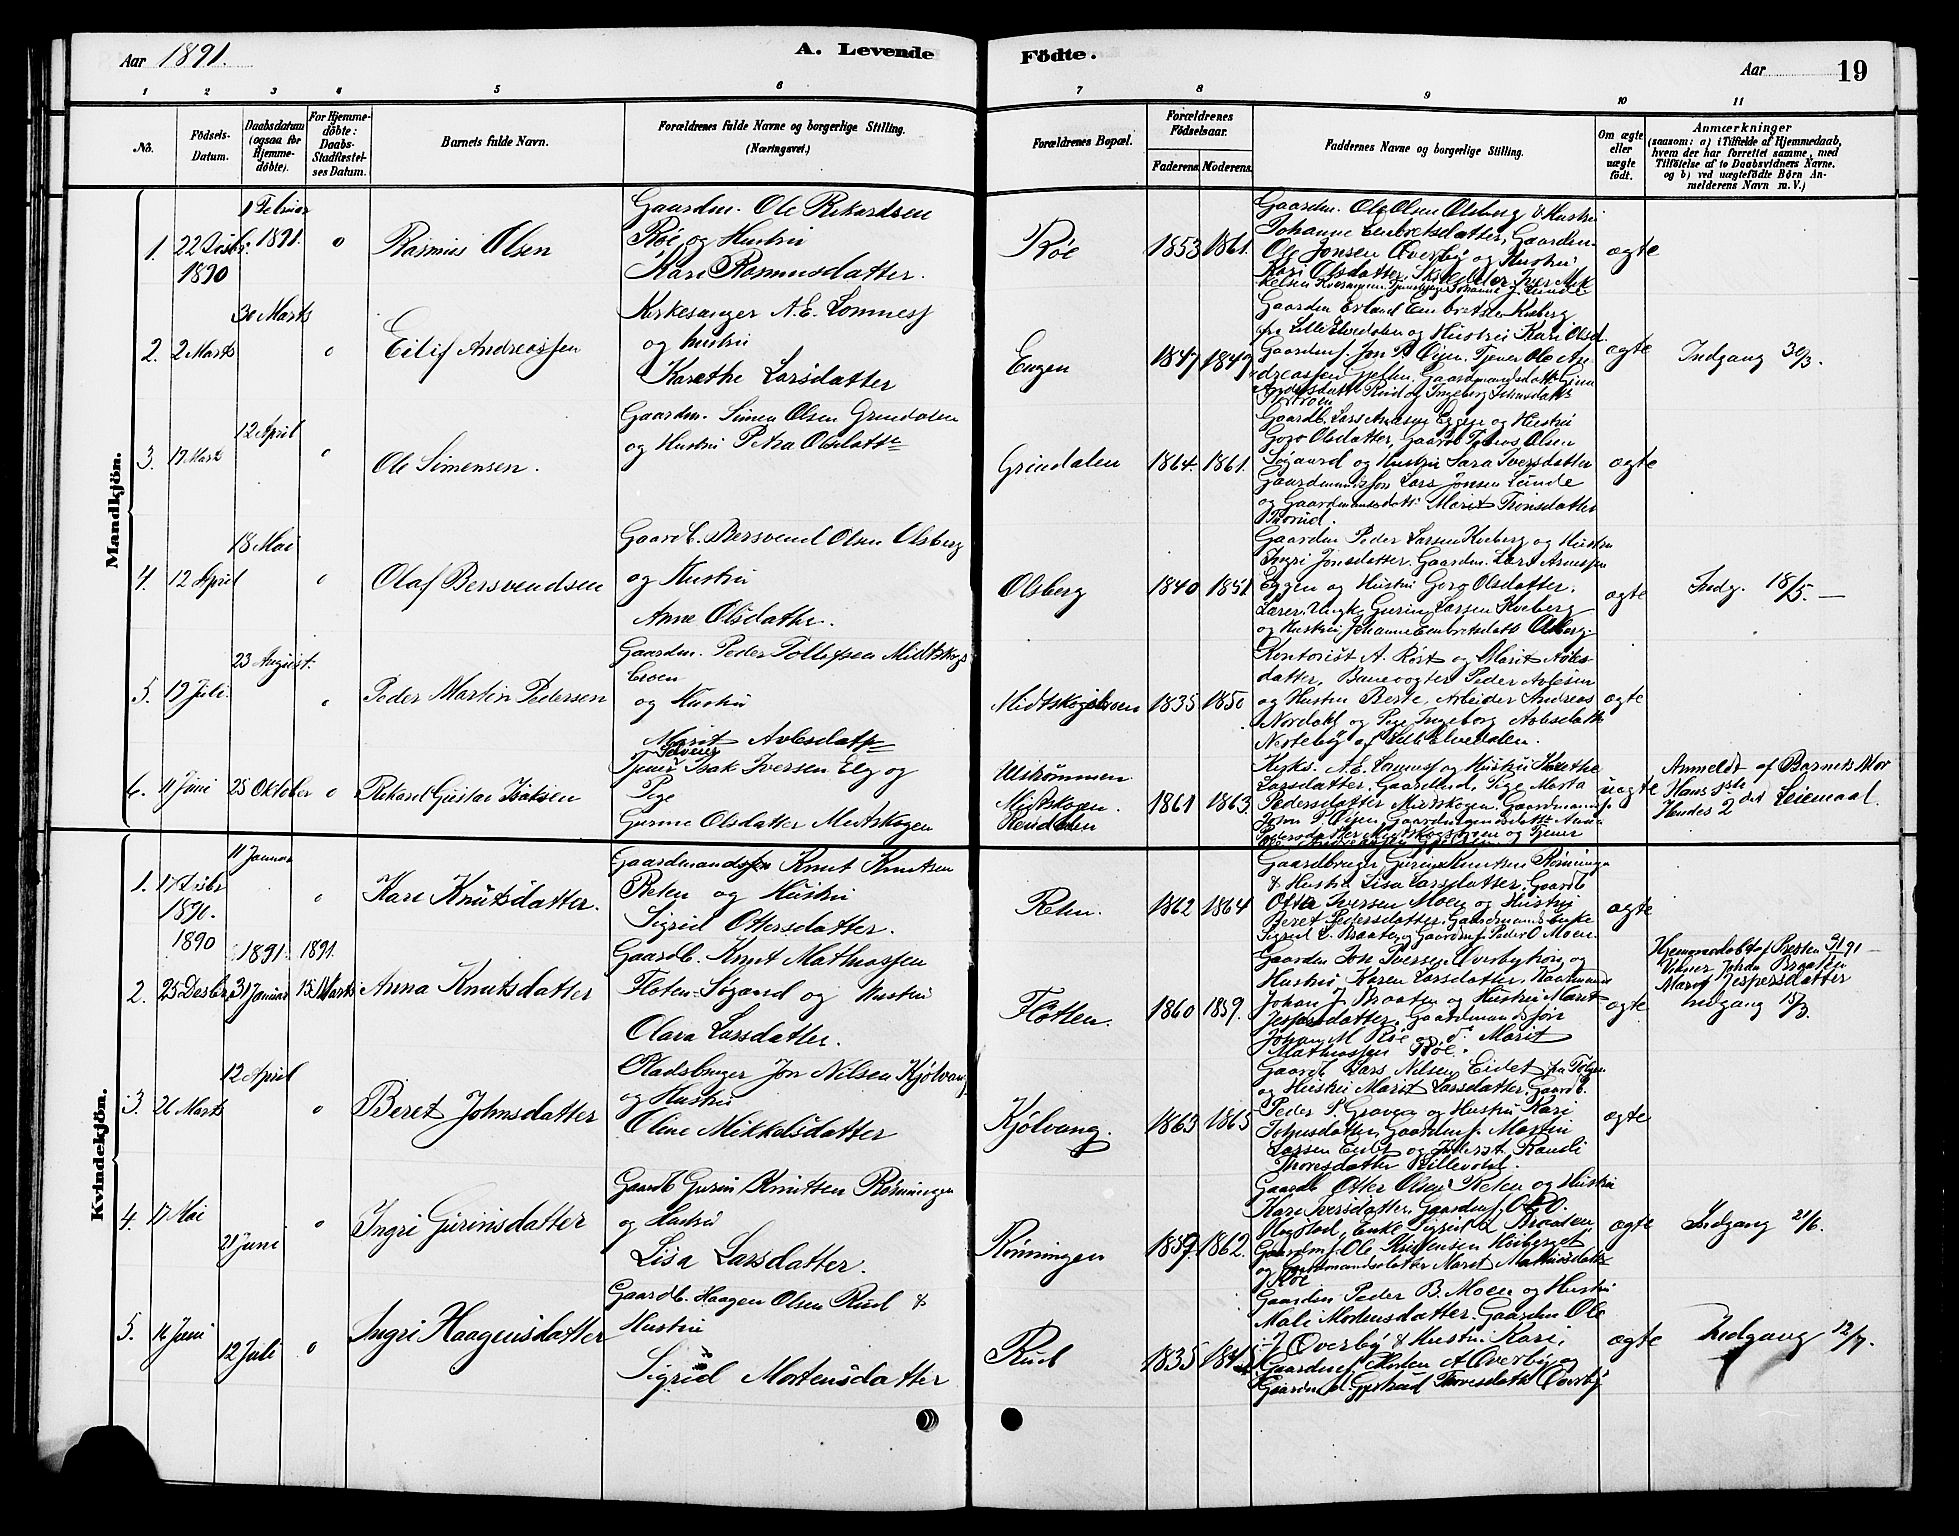 Aar 1891.
A. Levende
Födte.
Aar
19
1 2 3 4 5 6 7 8 9 10 11
No.
Födsels-
Datum.
Daabsdatum
(ogsaa for
Hjemme-
döbte).
For Hjemme-
döbte:
Daabs-
Stadfæstel-
ses Datum.
Barnets fulde Navn.
Forældrenes fulde Navne og borgerlige Stilling.
(Næringsvei.)
Forældrenes Bopæl.
Forældrenes
Födselsaar.
Faderens.
Moderens.
Faddernes Navne og borgerlige Stilling.
Om ægte
eller
uægte
födt.
Anmærkninger
(saasom: a) i Tilfælde af Hjemmedaab,
hvem der har forrettet samme, med
Tilföielse af to Daabsvidners Navne.
og b) ved uægtefödte Börn An-
melderens Navn m. V.)
Mandkjön.
1.
22 Desbr.
1890
1 Februar
1891.
o
Rasmus Olsen
Gaardm. Ole Rikardsen
Røe og Hustru
Kari Rasmusdatter.
Røe
1853
1861.
Gaardm. Ole Olsen Olsberg & Hustru
Johanne Eenbretsdatter, Gaardm.
Ole Jonsen Øverby og Hustru
Kari Olsdatter,
ægte
2.
2 Marts
30 Marts
o
Eilif Andreassen
Kirkesanger A. E. Lomnes
og Hustru
Karethe Larsdatter
Engen
1847
1849
Gaardm Erland Eenbretsen Kveberg
fra Lille Elvedalen og Hustru Kari Olsd.
Gaardms. Jon P. Øien. Tjener Ole An-
dreassen
ægte
Indgang 30/3.
3.
17 Marts
12 April
o
Ole Simensen.
Gaardm. Simen Olsen Grindalen
og Hustru Petra Olsdatter
Grindalen
1864.
1861.
Gaardb. Lars Arnesen Eggen og Hustru
Goro Olsdatter, Gaardb Tomas Olsen
Søgaard og Hustru Sara Iversdatter
Gaardmandssøn Lars Jonsen Lunde
og Gaardmandsdatt. Marit Tronsdatter
Trorud.
ægte
4.
12 April
18 Mai
o
Olaf Bersvendsen
Gaardb. Bersvend Olsen Olsberg
og Hustru
Anne Olsdatter.
Olsberg
1840
1851
Gaardm Peder Larsen Kveberg og Hustru
Ingri Jonsdatter. Gaardm. Lars Arnessen
Eggen og Hustru Goro Olsdatter.
Lærer, Ungk. Guring Larsen Kveberg
og Hustru Johanne Eenbretsdatt. Olsberg.
ægte
Indg. 18/5. —
5.
19 Juli.
23 August.
o
Peder Martin Pedersen
Gaardm. Peder Tollefsen Midtskogs
broen
og Hustru
Marit Avlesdatter
Midtskogsbroen
1835
1850
Kontorist A. Røst og Marit Avles-
datter, Banevogter Peder Avlesen
og Hustru Berte, Arbeider Andreas
Nordahl og Pige Ingeborg Avlesdatt.
Nesteby af Lille Elvedalen.
ægte
6.
11 Juni
25 Oktober
o
Rikard Gustav Isaksen
Tjener Isak Iversen Elg og
Pige
Gurine Olsdatter Midtskogen
Ulstrømmen
Midtskogen.
Rendalen
1861
1863
Kirks. A. E. Lomnes og Hustru Karethe
Larsdatter, Gaardmd, Pige Marta
Pedersdatter Midtskogen, Gaardmands.
Jon P. Øien,
uægte
Anmeldt af Barnets Mor
Hans 1ste
Hendes 2det Leiemaal.
Kvindekjön.
1.
17 Desbr
1890.
11 Januar
o
Kare Knutsdatter.
Gaardmandssøn Knut Knutsen
Reten og Hustru
Sigrid Ottersdatter.
Reten.
1862
1864
Gaardbruger Gurin Knutsen Rønninga
& Hustru Lisa Larsdatter. Gaardb
Otter Iversen Moen og Hustru
Beret Pedersdatter, Gaardmandsenke
Sigrid L. Braaten og Gaardms. Peder O Moen
ægte
2.
1890
25 Desbr
1891.
31 Januar
1891.
15 Marts
Anna Knutsdatter
Gaardb. Knut Mathiassen
Floten Søgaard og Hustru
Olava Larsdatter.
Flotten.
1860
1859.
Gaardm Jon Iversen Øverby og
Hustru Karen Larsdatter,
Johan J. Braaten og Hustru Marit
Jespersdatter. Gaardmandssøn
Johan M Røe og d. Marit
Mathiassen Røe.
ægte
Hjemmedøbt af Presten 31/1 91 —
Vidner Johan Braaten
Marit Jespersdatter
Indgang 15/3.
3.
26 Marts
12 April
o
Beret Johnsdatter
Pladsbruger Jon Nilsen Kjølvang
og Hustru
Oline Mikkelsdatter
Kjølvang.
1863
1865
Gaardb Lars Nilsen Eidet fra Tolgen
og Hustru Marit Larsdatter, Gaardb.
Peder P. Graven og Hustru Kari
Johnsdatter, Gaardms. Martin
Larsen Eidet og Inderst Randi
Thoresdatter Lillevold.
ægte
4.
17 Mai
21 Juni
o
Ingri Gurinsdatter
Gaardb Gurin Knutsen Rønningen
og Hustru
Lisa Larsdatter.
Rønningen
1859.
1862.
Gaardb Otter Olsen Reten og Hustru
Kari Iversdatter, Gaardms. Ole O.
Høistad, Enke Sigrid L Braaten,
Gaardms. Ole Kristensen Høiberget
og Gaardmandsdatter Marit Mathiasdatter
Røe
ægte
Indgang 21/6.
5.
16 Juni
12 Juli
o
Ingri Haagensdatter
Gaardb. Haagen Olsen Rud &
Hustru
Sigrid Mortensdatter
Rud
1835
Gaardm Peder B. Moen og Hustru
Mali Mortensdatter. Gaardm Ole
J. Øverby & Hustru Kari,
Gaardms. Morten A Øverby og
Gaardmd. Gjertrud Thoresdatt. Øverby
ægte
Indgang 12/7.